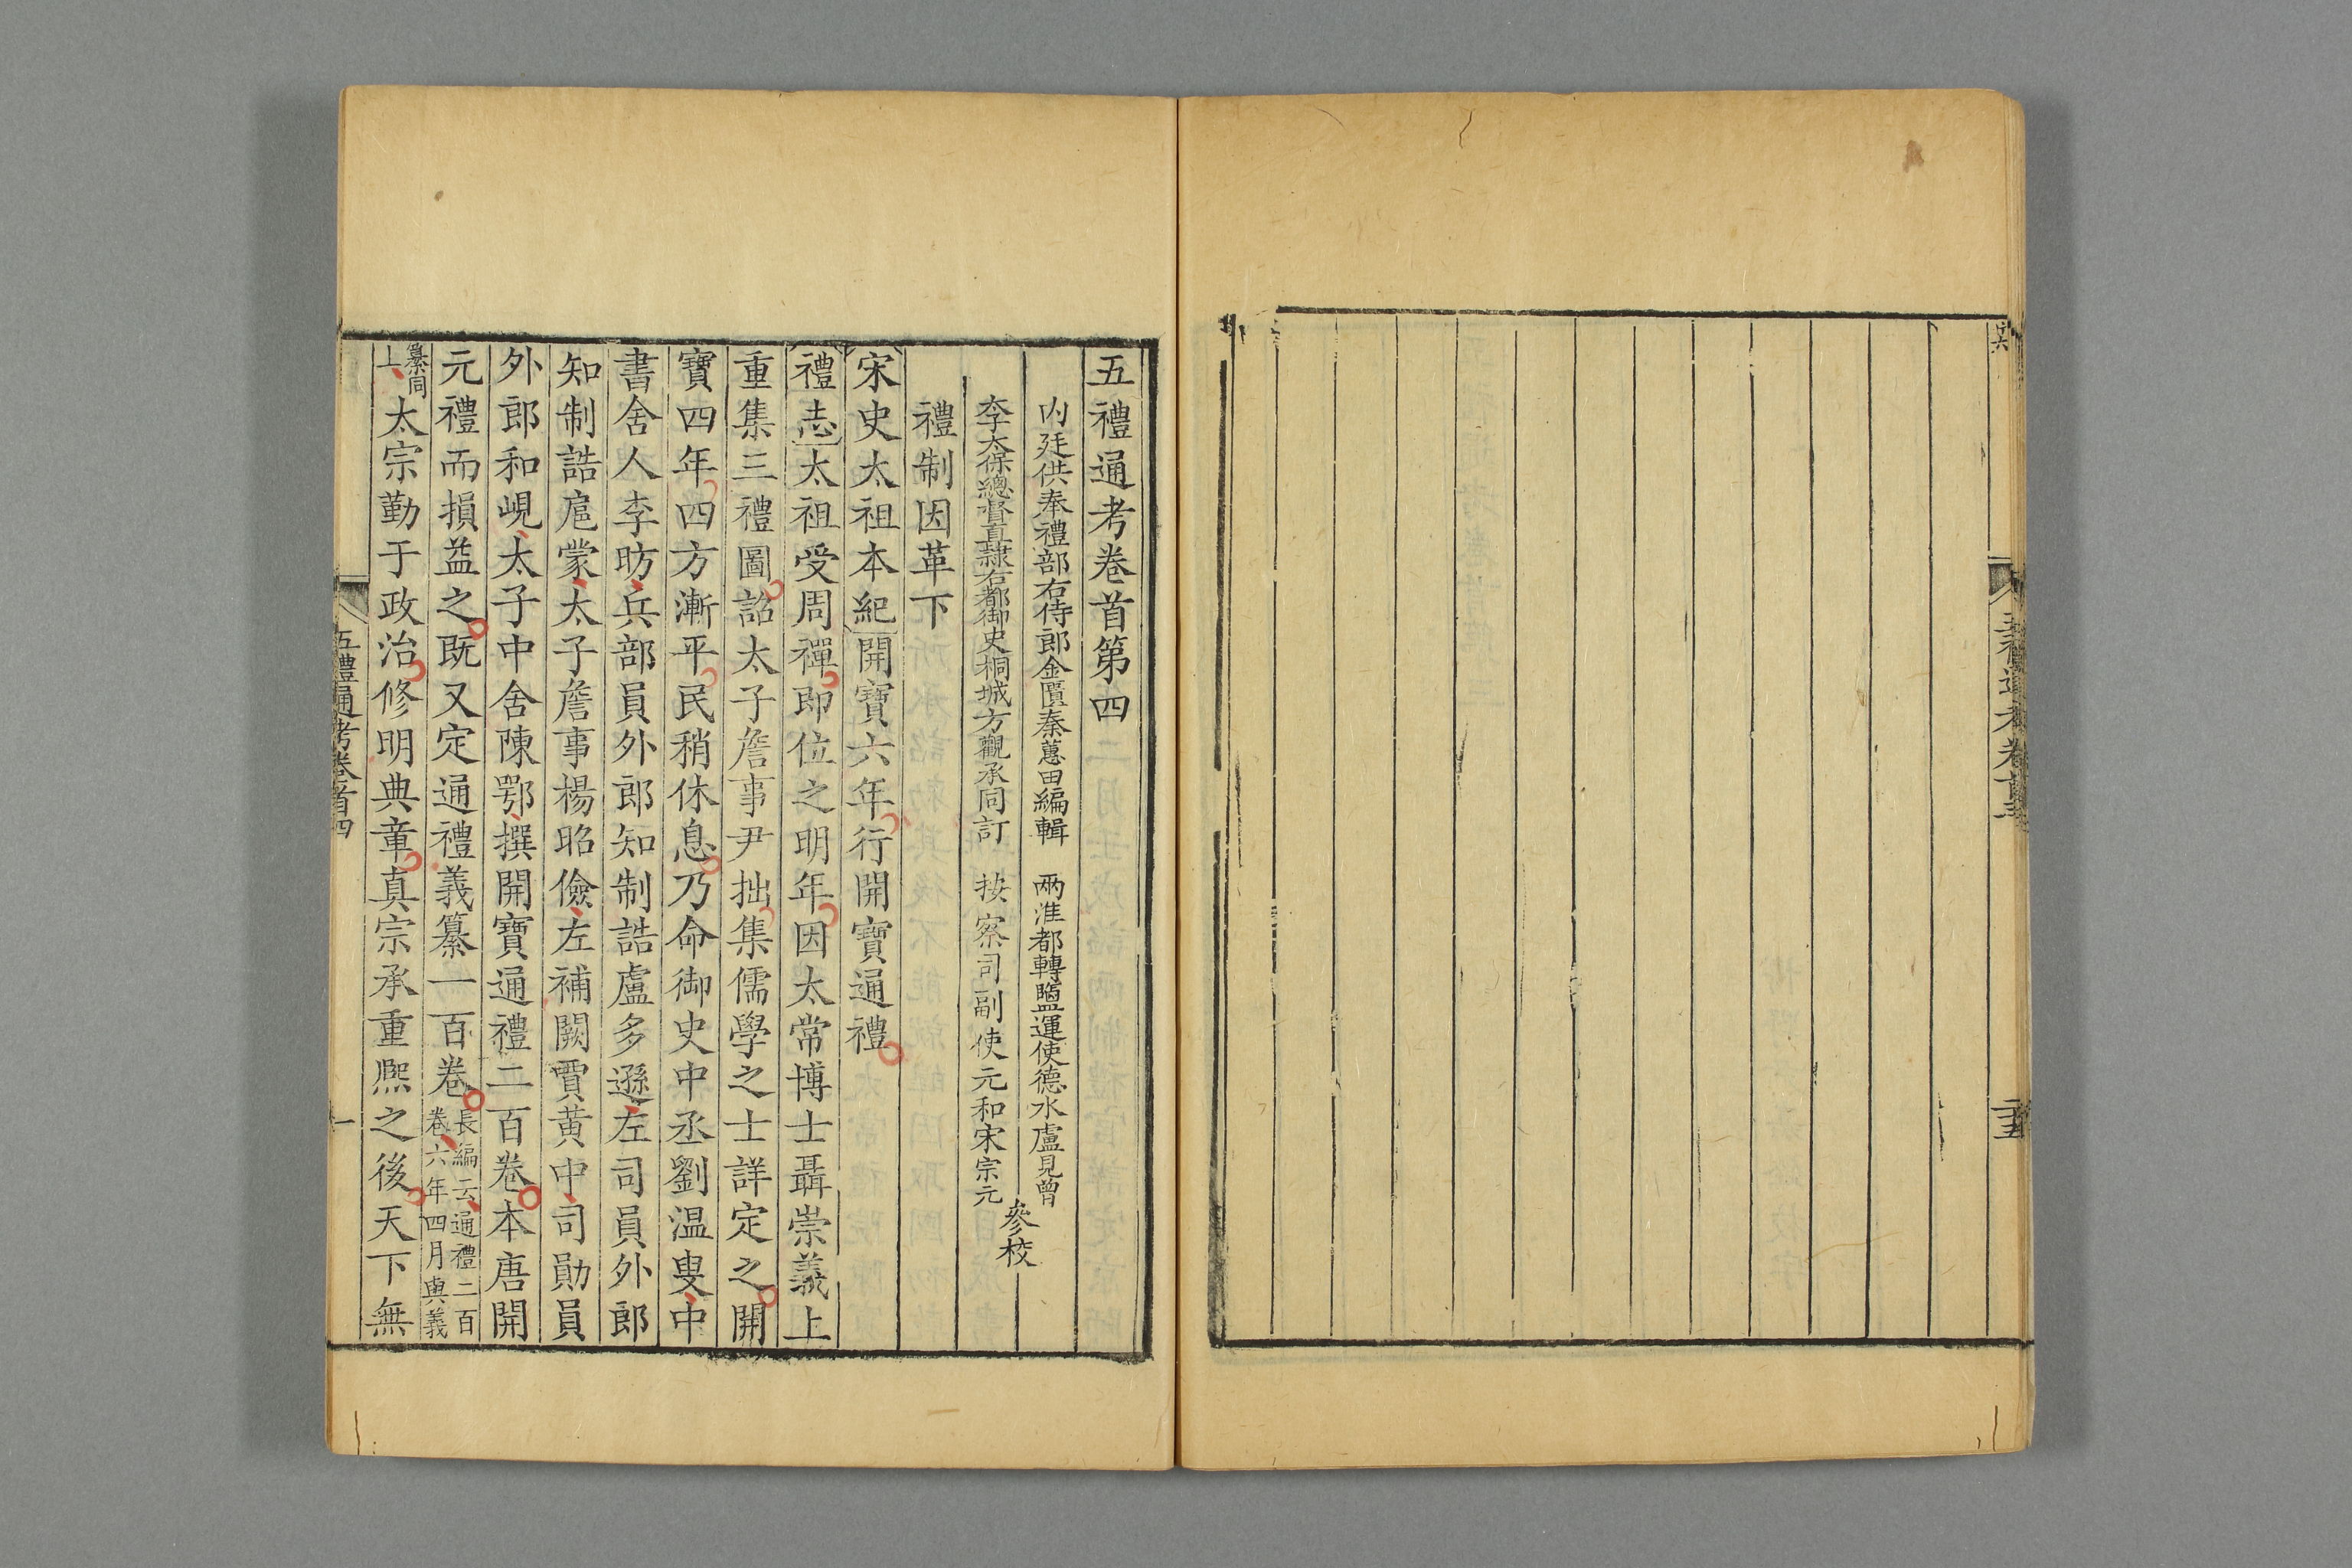 五禮通考卷首第四
內廷供奉禮部右侍郎金匱秦蕙田編輯　兩淮都轉鹽運使德水盧見曾
李太保總督直隸右都御史桐城方觀承同訂　按察司副使元和宋宗元
參校
禮制因革下
宋史太祖本紀開寶六年行開寶通禮
禮志太祖受周禪即位之明年因太常博士聶崇義上
重集三禮圖詔太子詹事尹拙集儒學之士詳定之開
寶四年四方漸平民稍休息乃命御史中丞劉温叟中
書舍人李昉兵部員外郎知制誥盧多遜左司員外郎
知制誥扈蒙太子詹事楊昭儉左補闕賈黃中司勛員
外郎和峴太子中舍陳鄂撰開寶通禮二百卷本唐開
元禮而損益之既又定通禮義纂一百卷長編云通禮二百
卷六年四月與義
纂同
上太宗勤于政治修明典章真宗承重熙之後天下無
五禮通考卷首四
一
五禮通考卷首三